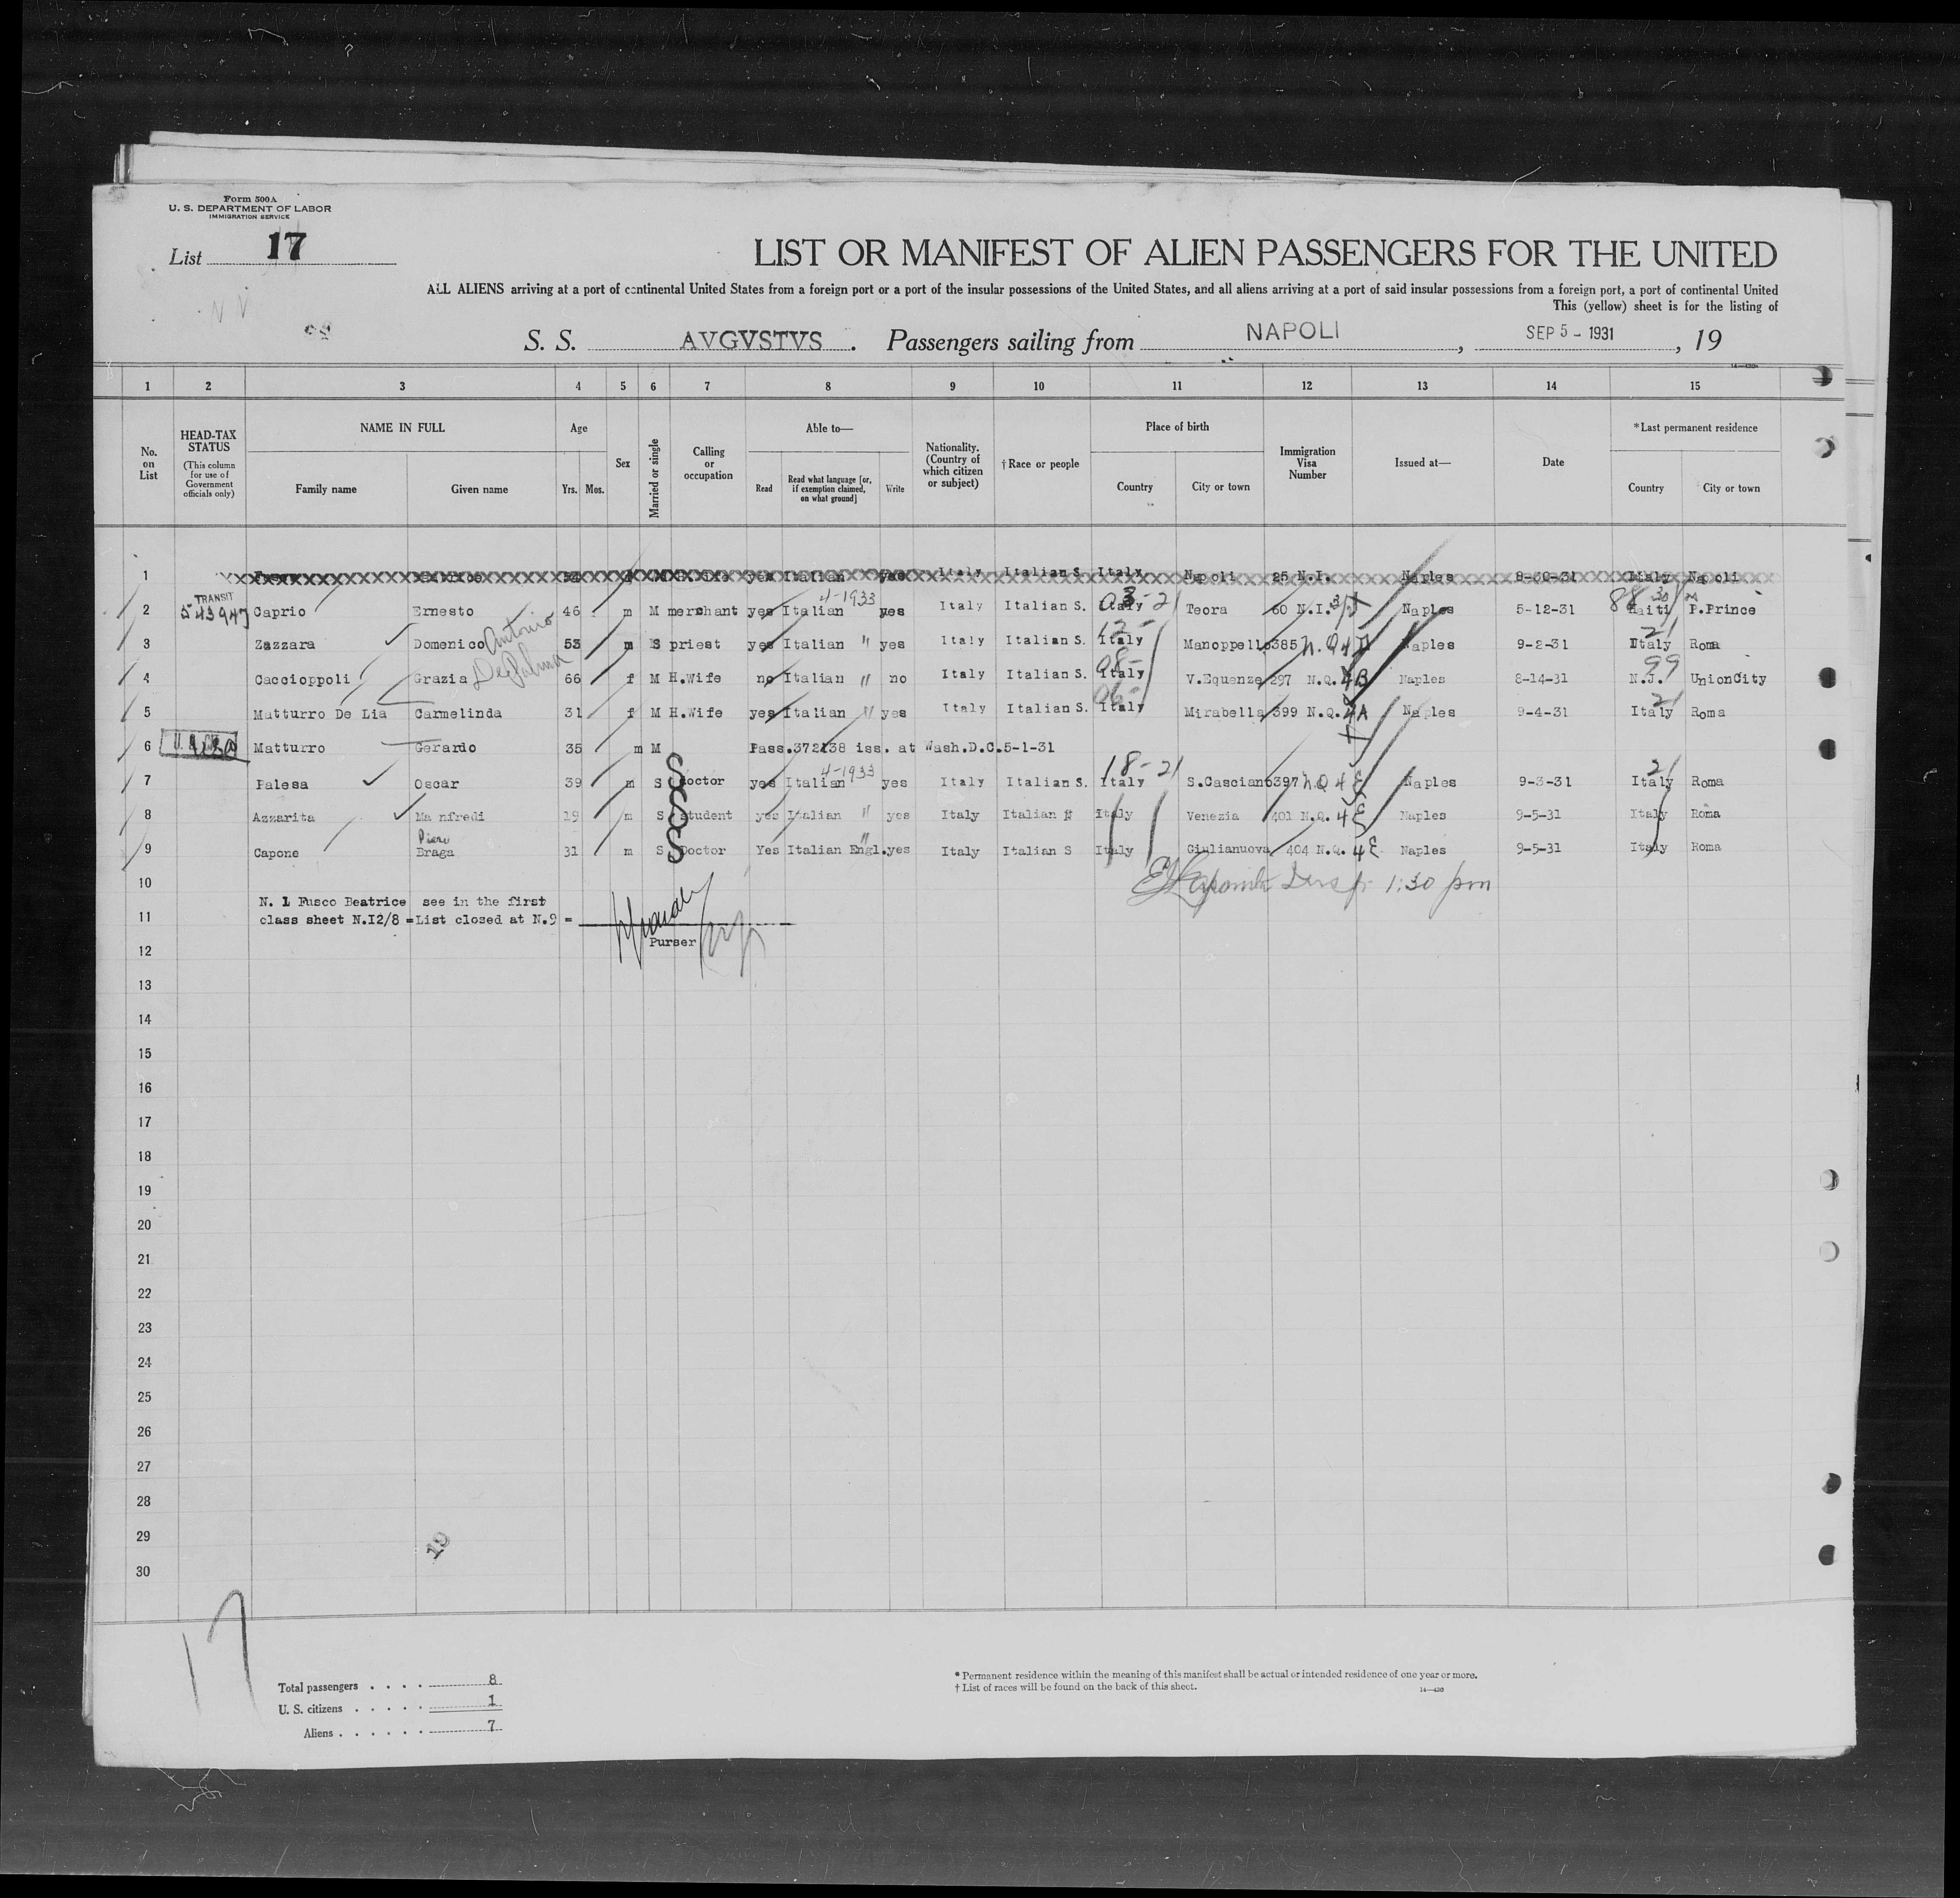 Form 500A
U. S. DEPARTMENT OF LABOR
IMMIGRATION SERVICE
List 17
LIST OR MANIFEST OF ALIEN PASSENGERS FOR THE UNITED
ALL ALIENS arriving at a port of continental United States from a foreign port or a port of the insular possessions of the United States, and all aliens arriving at a port of said insular possessions from a foreign port, a port of continental United
This (yellow) sheet is for the listing of
S. S. AVGVSTVS. Passengers sailing from NAPOLI, SEP 5 - 1931, 19
1 2 3 4 5 6 7 8 9 10 11 12 13 14 15
No. on List
HEAD-TAX STATUS (This column for use of Government officials only)
NAME IN FULL
Family name Given name
Age
Yrs. Mos.
Sex
Married or single
Calling or occupation
Able to—
Read Read what language [or, if exemption claimed, on what ground] Write
Nationality. (Country of which citizen or subject)
†Race or people
Place of birth
Country City or town
Immigration Visa Number
Issued at—
Date
*Last permanent residence
Country City or town
1 yes Italian yes Italy Italian S. Italy Napoli 25 N.I. Naples 8-30-31 Italy Napoli
4-1933
2 TRANSIT 543947 Caprio Ernesto 46 m M merchant yes Italian yes Italy Italian S. Italy 03-21 Teora 60 N.I. Naples 5-12-31 88 Haiti P.Prince
3 Zazzara Domenico Antonio 53 m S priest yes Italian " yes Italy Italian S. Italy 12- Manoppello 385 N.Q 4 D Naples 9-2-31 Italy 21 Roma
4 Caccioppoli Grazia De Palma 66 f M H.Wife no Italian " no Italy Italian S. Italy 08- V.Equenze 297 N.Q. 4 B Naples 8-14-31 N.J. 99 UnionCity
5 Matturro De Lia Carmelinda 31 f M H.Wife yes Italian " yes Italy Italian S. Italy 06- Mirabella 399 N.Q. 4 A Naples 9-4-31 Italy 21 Roma
6 Matturro Gerardo 35 m M Pass.372138 iss. at Wash.D.C.5-1-31
4-1933
7 Palesa Oscar 39 m S S doctor yes Italian yes Italy Italian S. Italy 18-21 S.Casciano 397 N.Q 4 E Naples 9-3-31 Italy 21 Roma
8 Azzarita Manfredi 19 m S S student yes Italian " yes Italy Italian Italy Venezia 401 N.Q. 4 E Naples 9-5-31 Italy Roma
Piero
9 Capone Braga 31 m S S Doctor Yes Italian Engl. yes Italy Italian S Italy Giulianuova 404 N.Q. 4 E Naples 9-5-31 Italy Roma
10 1:30 pm
N. 1 Fusco Beatrice see in the first
11 class sheet N.I2/8 =List closed at N.9 =
Purser
12
13
14
15
16
17
18
19
20
21
22
23
24
25
26
27
28
29
30
19
17
Total passengers . . . . 8
U. S. citizens . . . . . 1
Aliens . . . . . . 7
* Permanent residence within the meaning of this manifest shall be actual or intended residence of one year or more.
† List of races will be found on the back of this sheet.
14—430